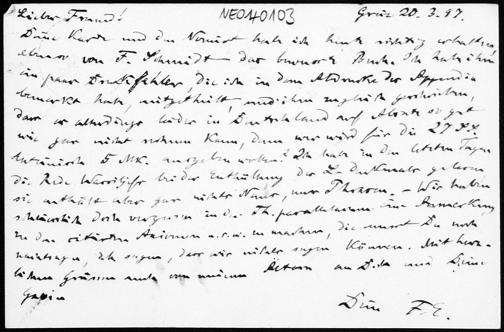 Lieber Freund! NE040103 Graz 20. 3. 97.
Deine Karte und den Vorwort habe ich heute richtig erhalten,
ebenso von F. Schmidt das bewusste Buch. Ich habe ihm
ein paar Druckfehler, die ich in dem Abdrucke der Appendix
bemerkt habe, mitgetheilt, und ihm zugleich geschrieben,
dass er allerdings leider in Deutschland auf Absatz so gut
wie gar nicht rechnen kann, denn wer wird für die 27 S.
lateinisch 5 MK. ausgeben wollen? Ich habe in den letzten Tagen
die Rede bei der Enthüllung des L. Denkmals gelesen,
sie enthält aber gar nichts Neues, nur Phrasen. – Wir haben
schliesslich doch vergessen in der Th. parallelarum eine Anmerkung
zu den citirten Axiomen u.s.w. zu machen, die musst Du noch
nachtragen, ich sagen, dass wir nichts sagen können. Mit herz-
lichen Grüssen auch von meinen Eltern an Dich und Deine
Gattin
Dein F. E.